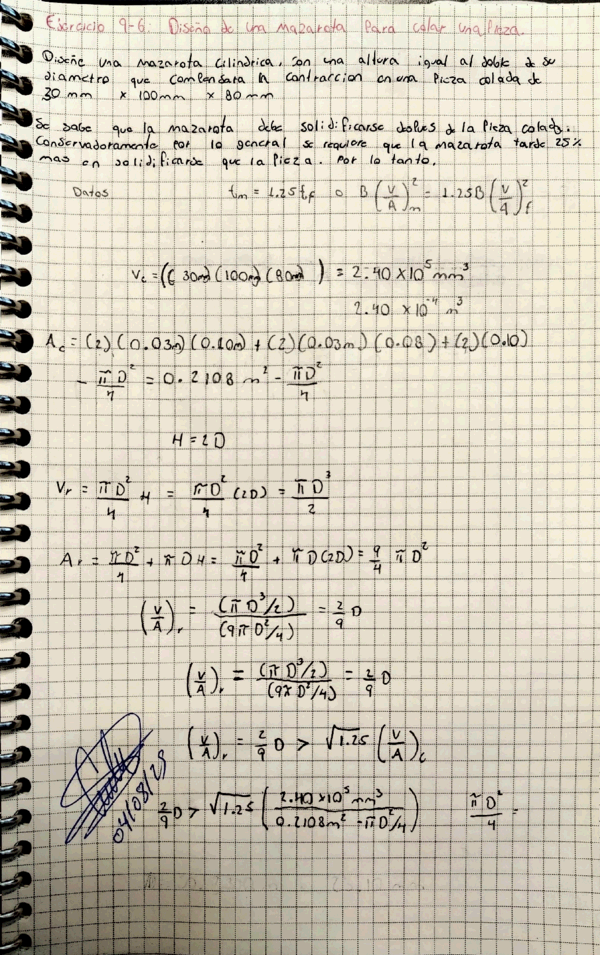 Ejercicio 9-6: Diseño de una mazarota Para colar una Pieza.
Diseñe una mazarota cilindrica, con una altura igual al doble de su
diametro que compensara la contraccion en una Pieza colada de
30 mm x 100mm x 80 mm
Se sabe que la mazarota debe solidificarse despues de la Pieza colada.
Conservadoramente por lo general se requiere que la mazarota tarde 25%
mas en solidificarse que la Pieza. Por lo tanto,
Datos tm = 1.25tf o B(V/A)²m = 1.25B(V/A)²f
Vc = (30m)(100m)(80m) = 2.40 x10⁵ mm³
2.40 x10⁻⁴ m³
Ac = (2)(0.03m)(0.10m) + (2)(0.03m)(0.08) + (2)(0.10)
- πD²/4 = 0.2108 m² - πD²/4
H = 2D
Vr = πD²/4 H = πD²/4 (2D) = πD³/2
Ar = πD²/4 + πDH = πD²/4 + πD(2D) = 9/4 πD²
(V/A)r = (πD³/2)/(9πD²/4) = 2/9 D
(V/A)r = (πD³/2)/(9πD²/4) = 2/9 D
(V/A)r = 2/9 D > √1.25 (V/A)c
2/9 D > √1.25 (2.40 x10⁵ mm³/0.2108m² - πD²/4) πD²/4 =
04/08/23